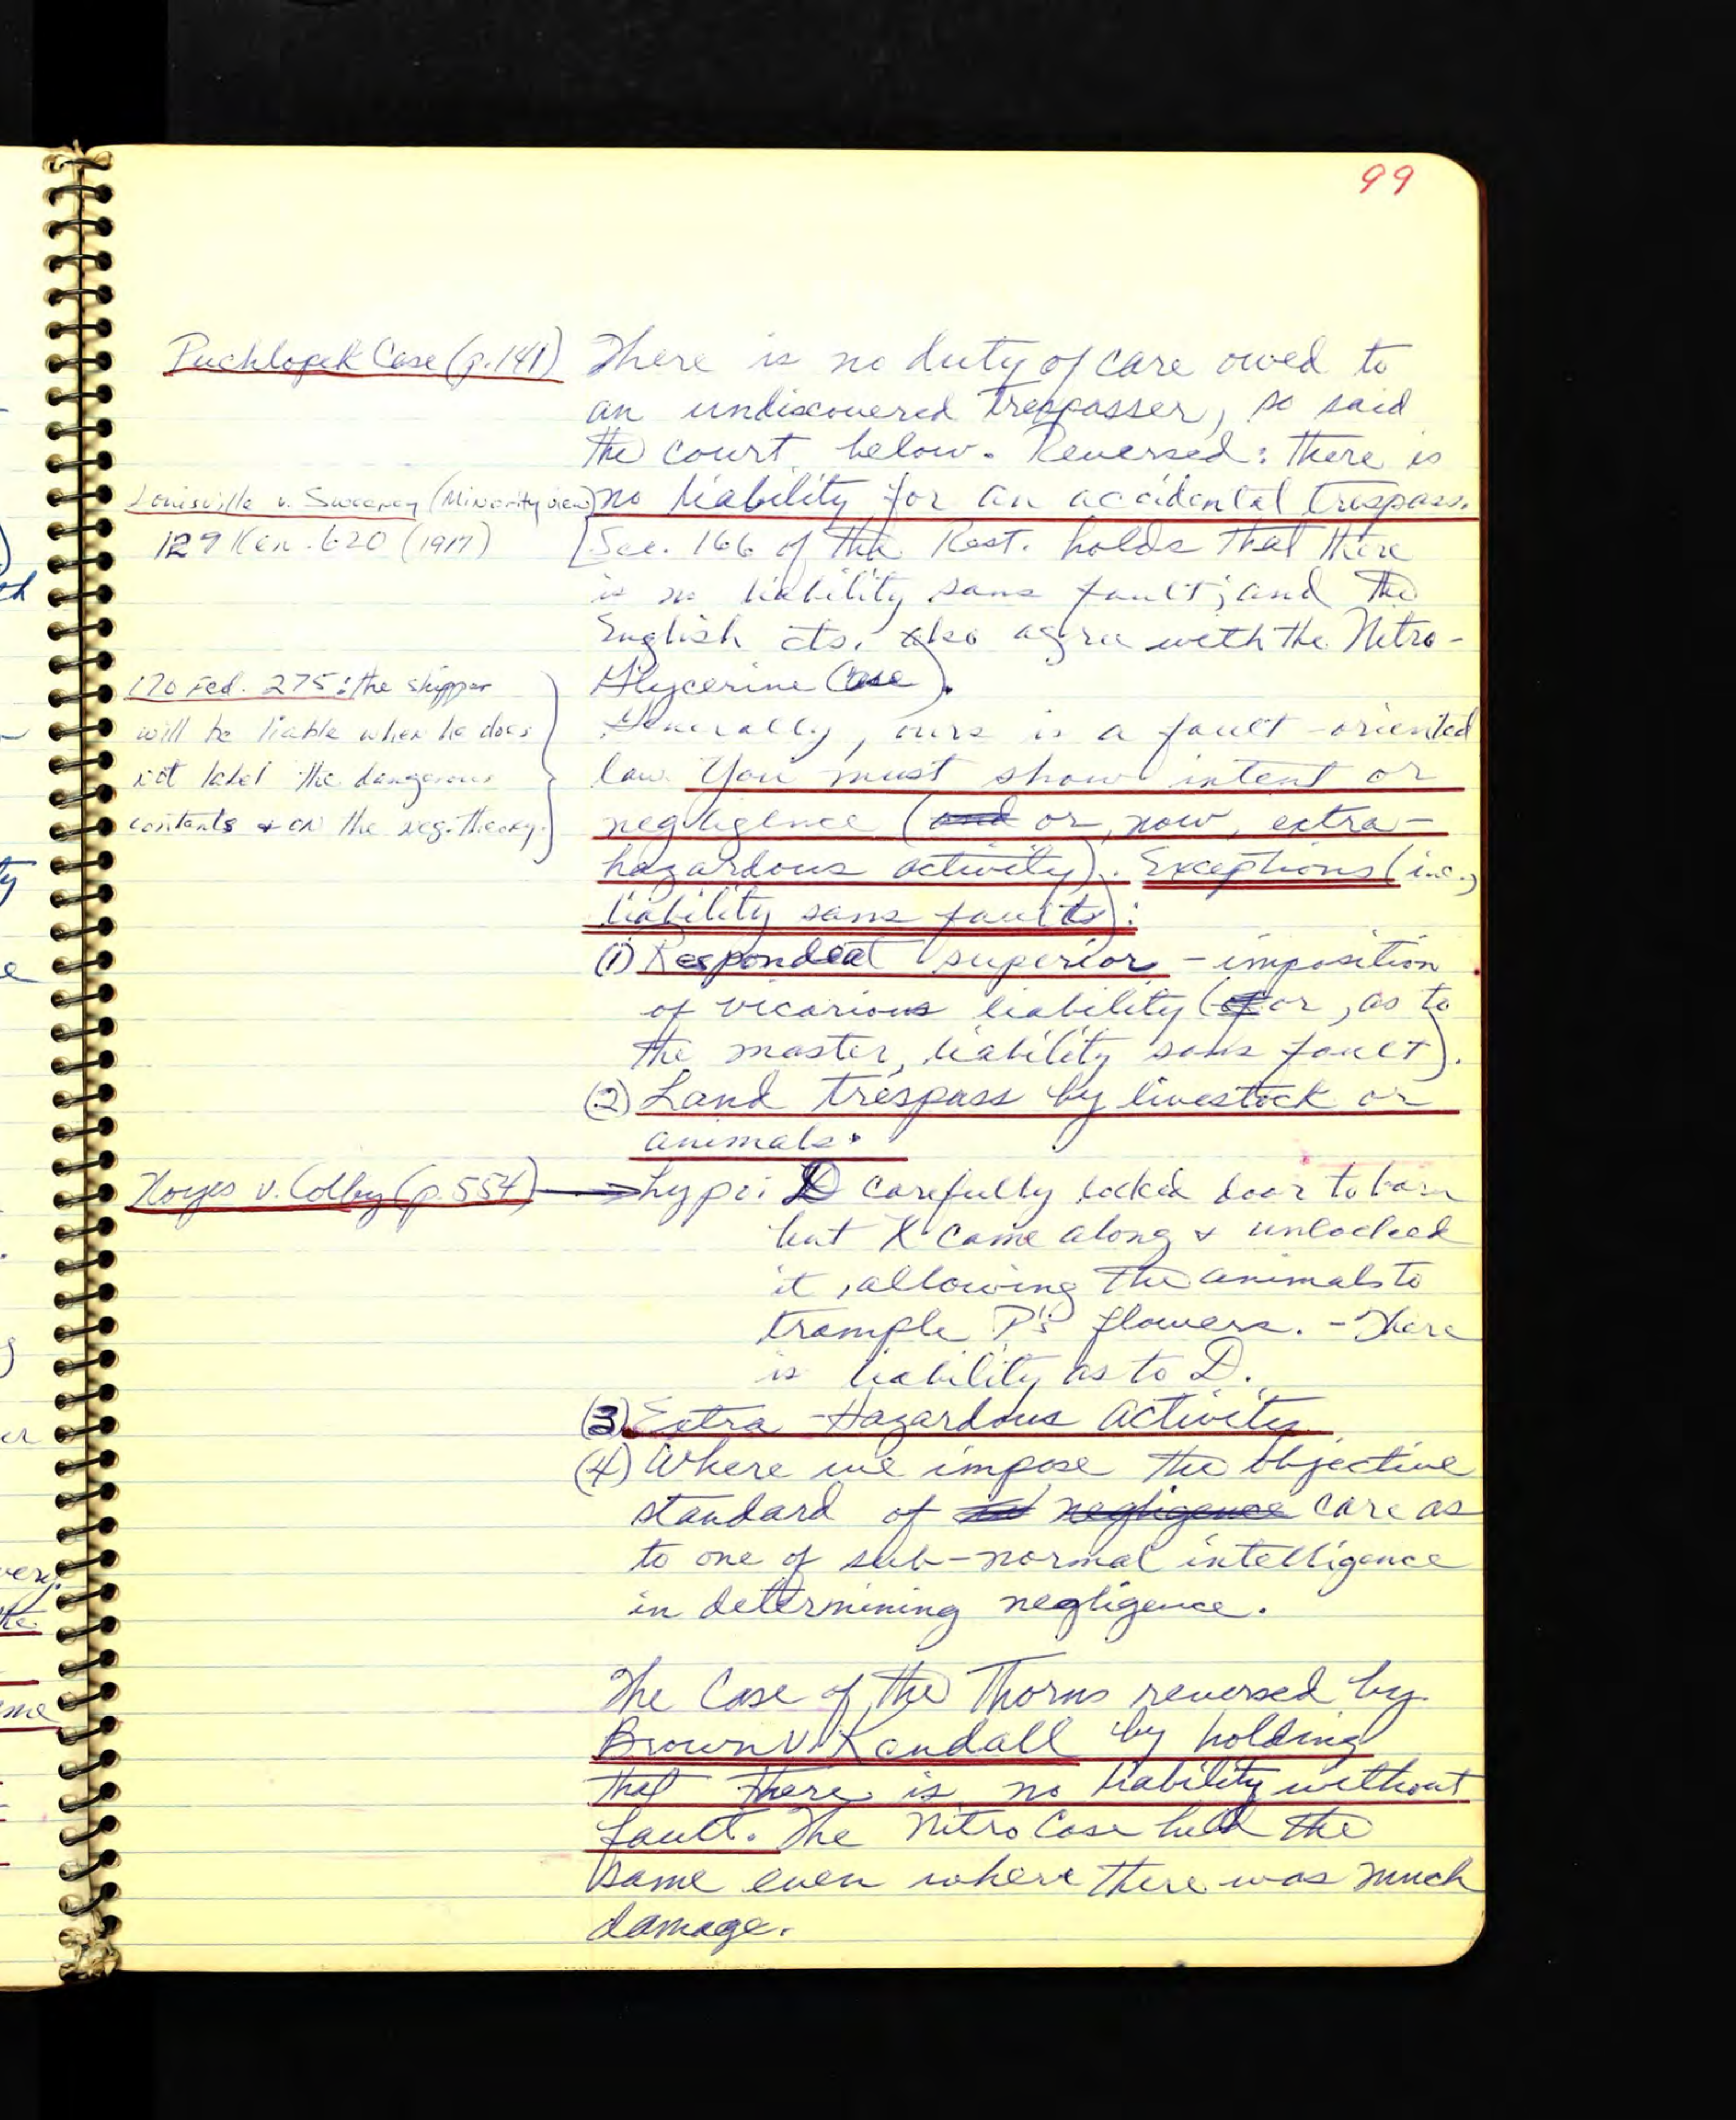 99
Puchlopek Case (p.141)
There is no duty of care owed to
an undiscovered trespasser, so said
the court below. Reversed: there is
Louisville v. Sweeney (Minority view)
no liability for an accidental trespass.
129 Ken. 620 (1917)
[Sec. 166 of the Rest. holds that there
is no liability sans fault; and the
English cts. also agree with the Nitro-
Glycerine Case).
170 Fed. 275: the shipper
will be liable when he does
not label the dangerous
contents & on the neg. theory.
Generally, ours is a fault-oriented
law. You must show intent or
negligence (and or, now, extra-
hazardous activity). Exceptions (i.e.,
liability sans faults):
(1) Respondeat superior - imposition
of vicarious liability (of or, as to
the master, liability sans fault).
(2) Land trespass by livestock or
animals.
Noyes v. Colby (p.554)
hypo: D carefully locked door to barn
but X came along & unlocked
it, allowing the animals to
trample P's flowers. - There
is liability as to D.
(3) Extra-Hazardous Activity
(4) Where we impose the objective
standard of negligence care as
to one of sub-normal intelligence
in determining negligence.
The Case of the Thorns reversed by
Brown v. Kendall by holding
that there is no liability without
fault. The Nitro Case held the
same even where there was much
damage.